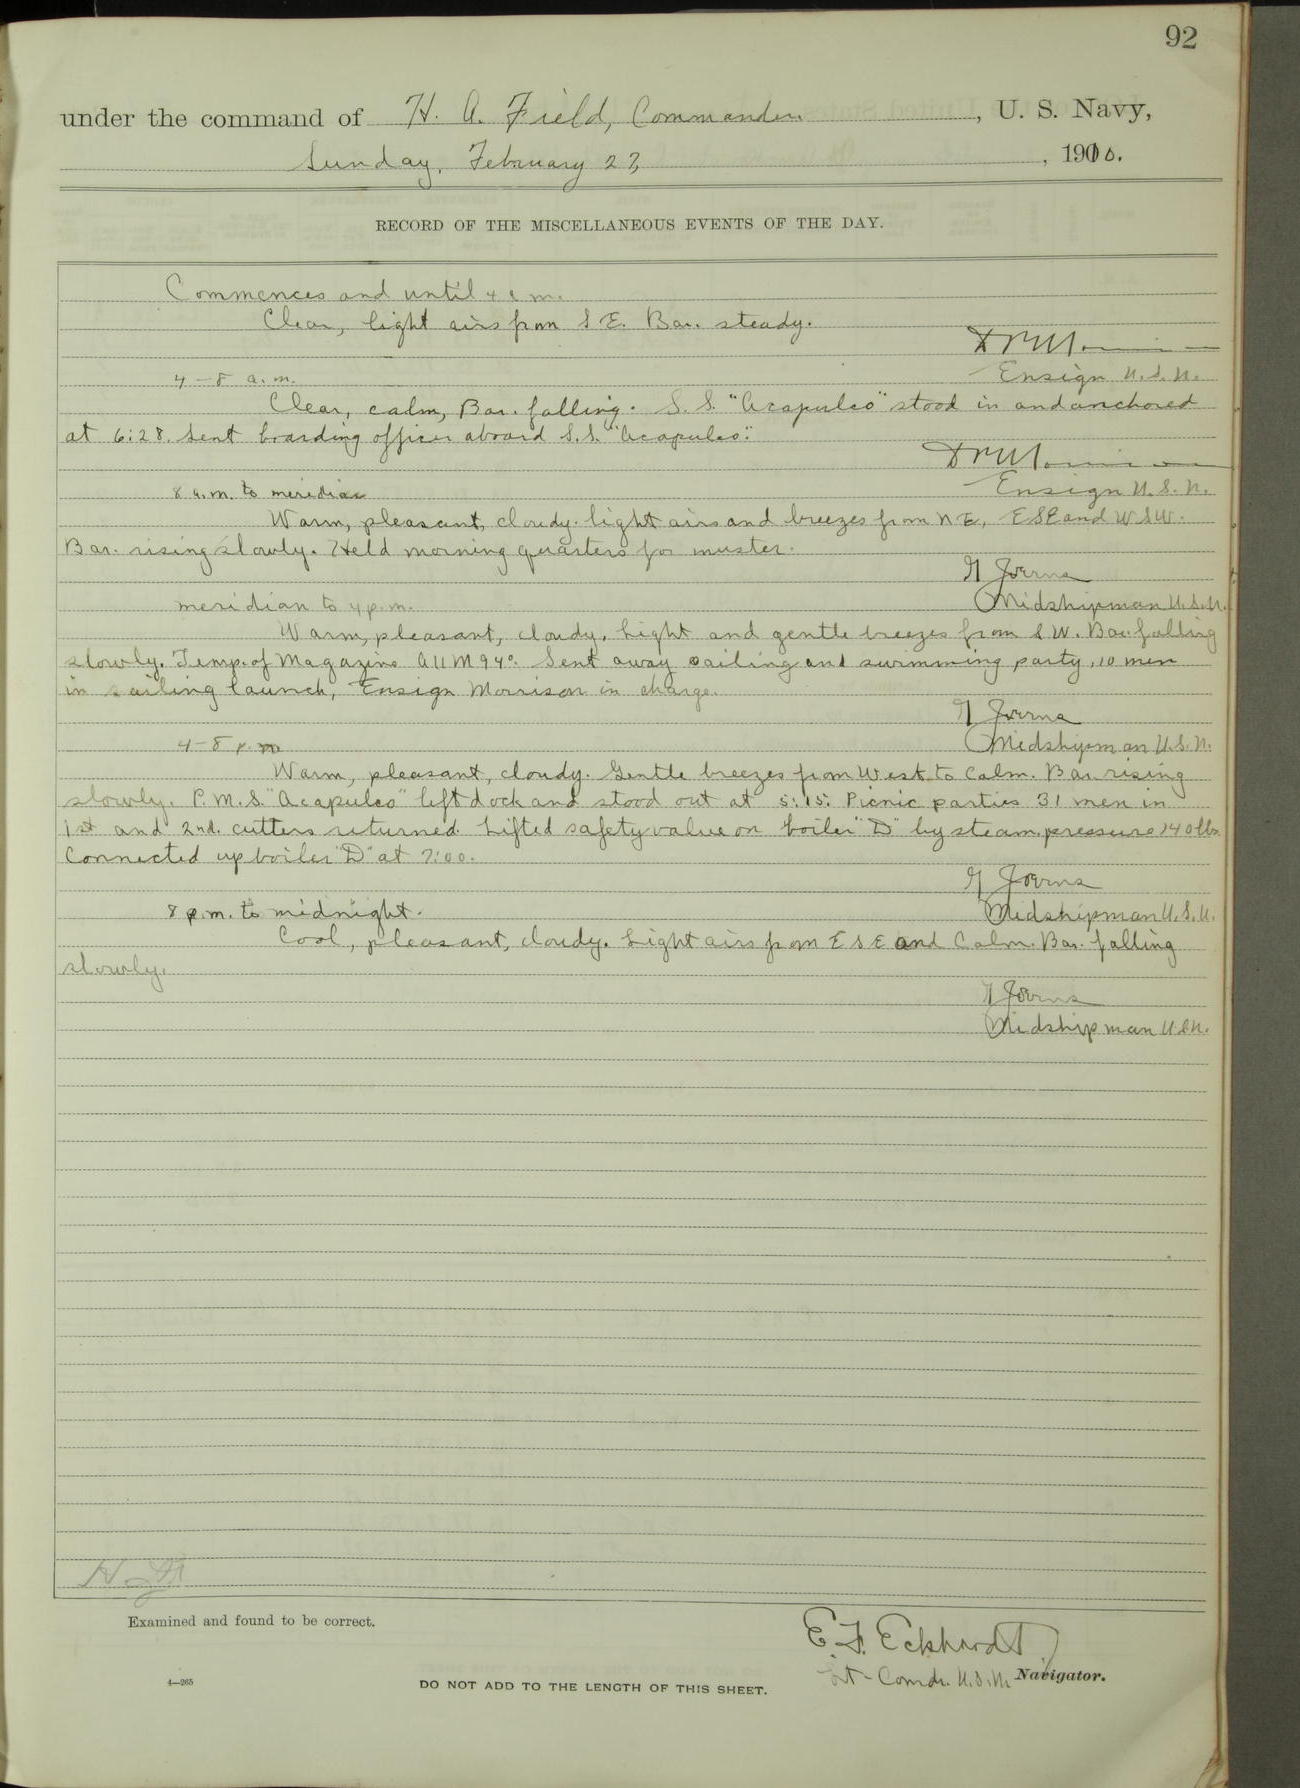 92
under the command of H. A. Field, Commander, U. S. Navy,
Sunday, February 27, 1910.
RECORD OF THE MISCELLANEOUS EVENTS OF THE DAY.
Commences and until 4 a m.
Clear, light airs from S E. Bar. steady.
Ensign U.S.N.
4-8 a.m.
Clear, calm, Bar. falling. S.S. "Acapulco" stood in and anchored
at 6:28. Sent boarding officer aboard S.S. "Acapulco".
Ensign U.S.N.
8 a.m. to meridian
Warm, pleasant, cloudy. light airs and breezes from N E, ESE and WSW.
Bar. rising slowly. Held morning quarters for muster.
Joerns
Midshipman U.S.N.
meridian to 4 p.m.
Warm, pleasant, cloudy. Light and gentle breezes from S W. Bar. falling
slowly. Temp. of Magazine A11M 94°. Sent away sailing and swimming party, 10 men
in sailing launch, Ensign Morrison in charge.
Joerns
Midshipman U.S.N.
4-8 p.m
Warm, pleasant, cloudy. Gentle breezes from West to Calm. Bar. rising
slowly. P.M.S. "Acapulco" left dock and stood out at 5:15. Picnic parties 31 men in
1st and 2nd. cutters returned. Lifted safety valve on boiler "D" by steam. pressure 140 lbs.
Connected up boiler "D" at 7:00.
Joerns
Midshipman U.S.N.
8 p.m. to midnight.
Cool, pleasant, cloudy. Light airs from E S E and Calm. Bar. falling
slowly.
Joerns
Midshipman U.S.N.
Examined and found to be correct.
E. F. Eckhardt
Lt-Comdr. U.S.N. Navigator.
4—265
DO NOT ADD TO THE LENGTH OF THIS SHEET.